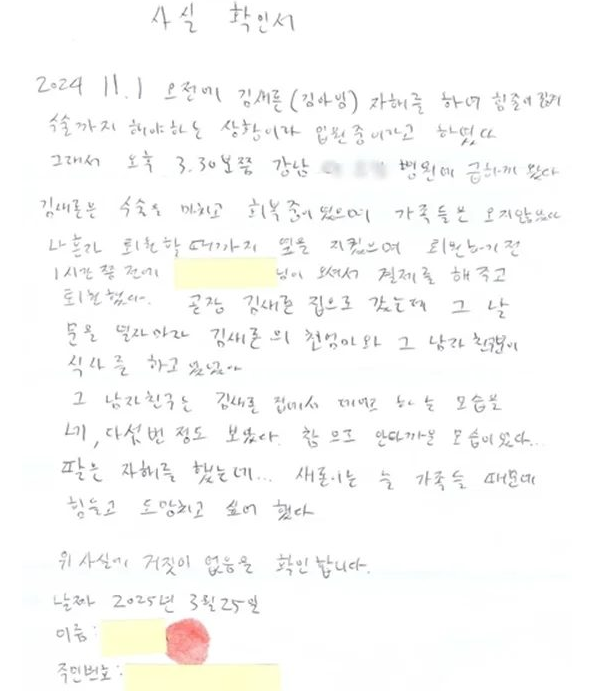 사실 확인서
2024 11.1 오전에 김새론(김아임) 자해를 하여 힘줄이 끊겨
수술까지 해야하는 상황이라 입원중이라고 하였다
그래서 오후 3.30분쯤 강남 병원에 급하게 왔다
김새론은 수술을 마치고 회복중이었으며 가족들은 오지않았다
나 혼자 퇴원할때까지 옆을 지켰으며 퇴원하기전
1시간 쯤 전에 님이 오셔서 결제를 해주고
퇴원했다. 곧장 김새론 집으로 갔는데 그 날
문을 열자마자 김새론의 친엄마와 그 남자친구분이
식사를 하고 있었다
그 남자친구는 김새론 집에서 데면 하는 모습을
네, 다섯번 정도 보았다. 참으로 안타까운 모습이였다...
딸은 자해를 했는데... 새론이는 늘 가족들 때문에
힘들고 도망치고 싶어 했다
위 사실에 거짓이 없음을 확인합니다.
날짜 2025년 3월 25일
이름:
주민번호: